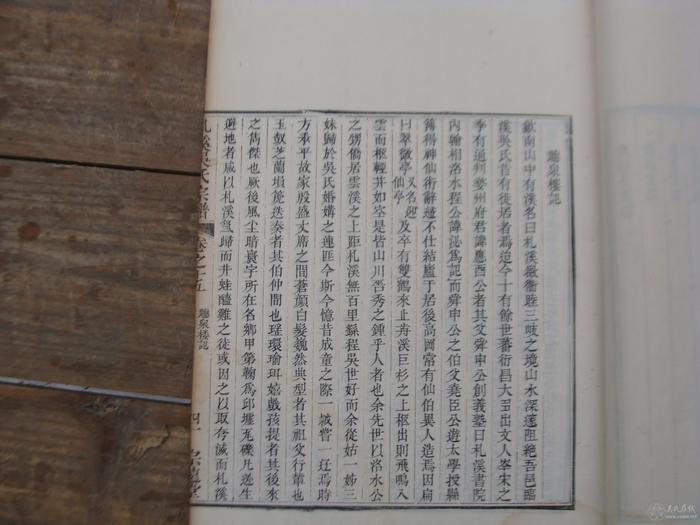 聽泉樓記
歙南山中有溪名曰札溪徽衢睦三岐之境山水深邃阻絕吾邑臨
溪吳氏昔有徒居者焉迨今十有餘世蕃衍昌大至出文人宋宋之
季有通判婺州府君諱應酉公者其父舜申公創義塾曰札溪書院
內翰相洛水程公諱珌為記而舜申公之伯父堯臣公遊太學授縣
簿得神仙術辭遯不仕結廬于居後高岡常有仙伯異人造焉因扁
曰翠微亭又名迎仙亭及卒有雙鶴來止舟溪巨杉之上樞出則飛鳴入
雲而樞輕井如空是皆山川苦秀之鍾乎人者也余先世以洛水公
之甥僑居雲溪之上距札溪無百里繇程吳世好而余從姑一姊三
妹歸於吳氏婚媾之連匪今斯今憶昔成童之際一載嘗一迓焉時
方承平故家殷盛丈席之間蒼顏白髮巍然典型者其祖父行輩也
玉叙芝蘭塤箎迭奏者其伯仲間也瑤環瑜珥嬉戲孩提者其後來
之雋傑也厥後風尘暗寰宇所在名鄉甲第鞠為邱墟瓦礫凡逃生
避地者咸以札溪為歸而井蛙醯雞之徒或因之以取夸誠而札溪
札溪吳氏宗譜 卷之十五 聽泉樓記 四十